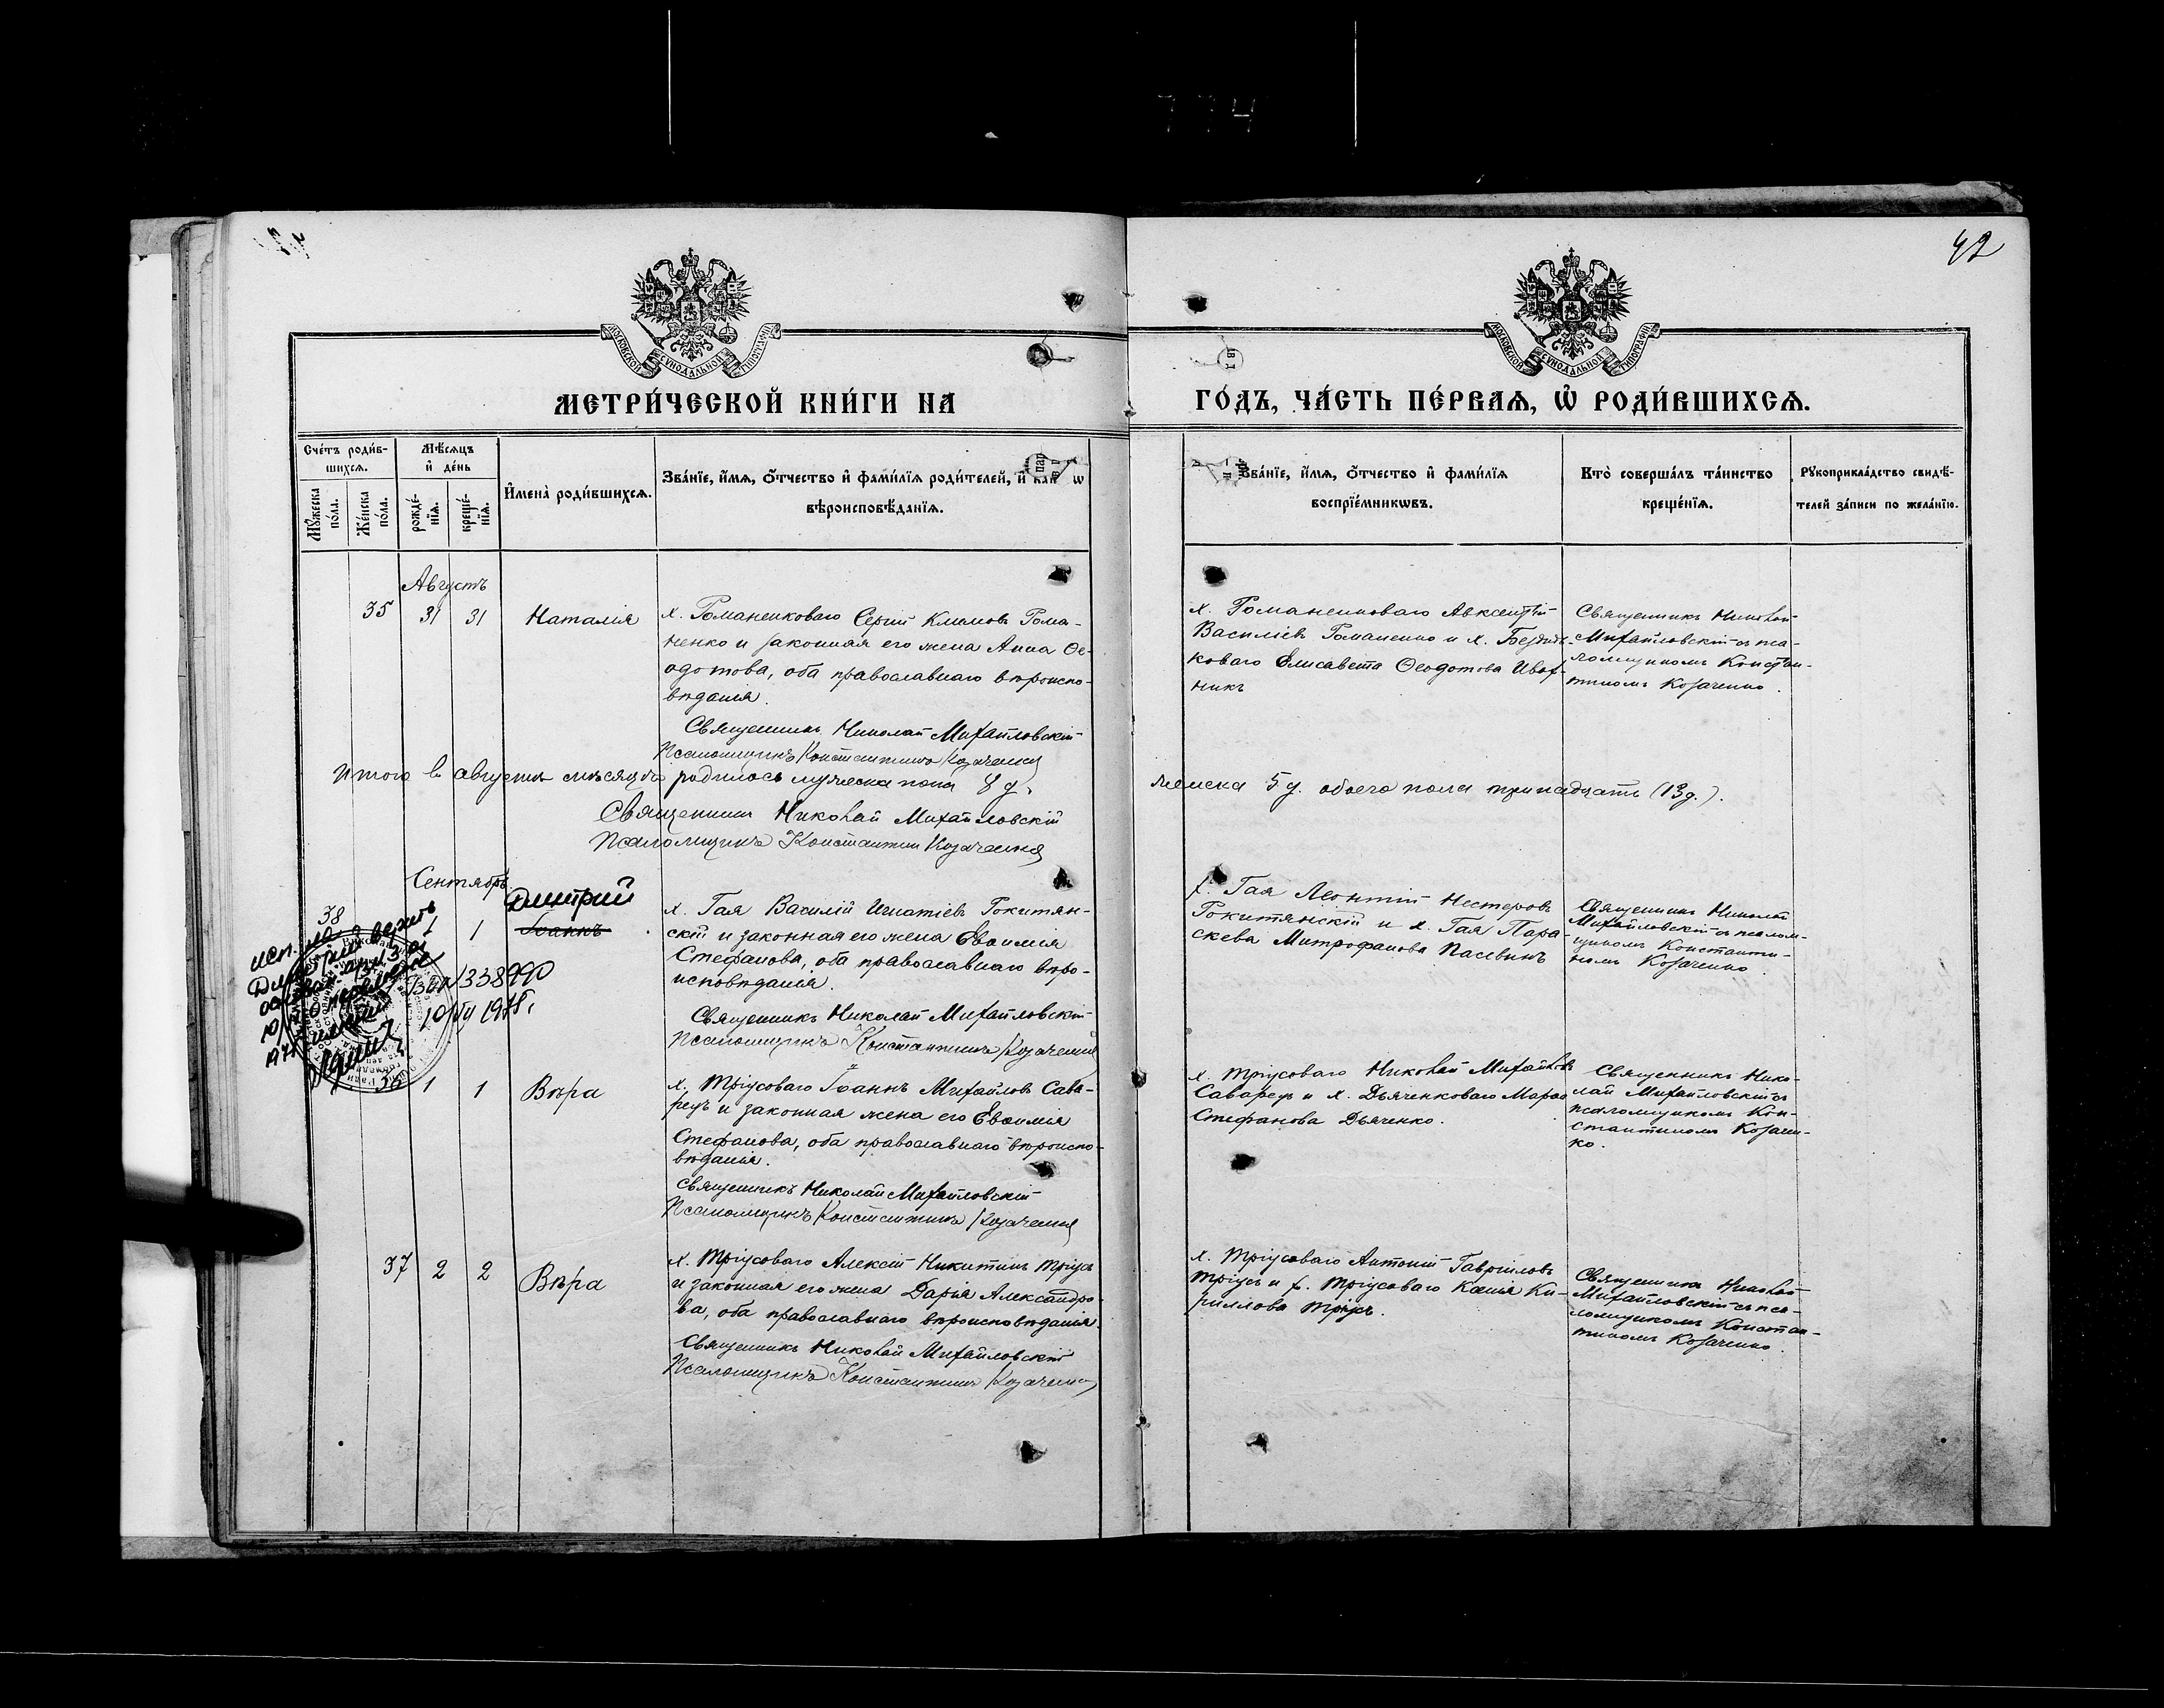 774
42
МОСКОВСКОЙ СѴНОДАЛЬНОЙ ТИПОГРАФІИ
МОСКОВСКОЙ СѴНОДАЛЬНОЙ ТИПОГРАФІИ
МЕТРИ́ЧЕСКОЙ КНИ́ГИ НА
ГО́ДЪ, ЧА́СТЬ ПЕ́РВАѦ, Ѽ РОДИ́ВШИХСѦ.
Сче́тъ роди́в-
шихсѧ.
Мѣ́сѧцъ
и҆ де́нь
Мꙋ́жеска
по́ла.
Же́нска
по́ла.
рожде́-
нїѧ.
креще́-
нїѧ.
И҆мена̀ роди́вшихсѧ.
Зва́нїе, и҆́мѧ, ѻ҆́тчество и҆ фами́лїѧ роди́телей, и҆
вѣроисповѣ́данїѧ.
Зва́нїе, и҆́мѧ, ѻ҆́тчество и҆ фами́лїѧ
воспрїе́мникѡвъ.
Кто̀ соверша́лъ та́инство
креще́нїѧ.
Рꙋкоприкла́дство свидѣ́-
телей за́писи по жела́нїю.
Августъ
35 31 31 Наталія
х. Романенковаго Сергій Климовъ Рома-
ненко и законная его жена Анна Ѳе-
одотова, оба православнаго вѣроиспо-
вѣданія.
Священникъ Николай Михайловскій
Псаломщикъ Константинъ Козаченко
х. Романенковаго Авксентій
Василіевъ Романенко и х.
коваго Елисавета Ѳеодотова
никъ
Священникъ Николай
Михайловскій съ пса-
ломщикомъ Констан-
тиномъ Козаченко.
Итого въ августѣ мѣсяцѣ родилось мужеска пола 8 д.
женска 5 д. обоего пола тринадцать (13 д.).
Священникъ Николай Михайловскій
Псаломщикъ Константинъ Козаченко
Сентябрь
38 1 1 Дмитрий
Іоаннъ
х. Гая Василій Игнатіевъ Рокитян-
скій и законная его жена Евѳимія
Стефанова, оба православнаго вѣро-
исповѣданія.
Священникъ Николай Михайловскій
Псаломщикъ Константинъ Козаченко
х. Гая Леонтій Нестеровъ
Рокитянскій и х. Гая Пара-
скева Митрофанова
Священникъ Николай
Михайловскій съ псалом-
щикомъ Константи-
номъ Козаченко.
исп. на
Дмитрий верить
338990
36 1 1 Вѣра
х. Тріусоваго Іоаннъ Михайловъ Сава-
рецъ и законная жена его Евѳимія
Стефанова, оба православнаго вѣроиспо-
вѣданія.
Священникъ Николай Михайловскій
Псаломщикъ Константинъ Козаченко
х. Тріусоваго Николай Михайловъ
Саварецъ и х. Дьяченковаго Марѳа
Стефанова Дьяченко.
Священникъ Нико-
лай Михайловскій съ
псаломщикомъ Кон-
стантиномъ Козачен-
ко.
37 2 2 Вѣра
х. Тріусоваго Алексій Никитинъ Тріусъ
и законная его жена Дарія Александро-
ва, оба православнаго вѣроисповѣданія.
Священникъ Николай Михайловскій
Псаломщикъ Константинъ Козаченко
х. Тріусоваго Антоній Гавріиловъ
Тріусъ и х. Тріусоваго Ксенія Ки-
риллова Тріусъ.
Священникъ Николай
Михайловскій съ пса-
ломщикомъ Констан-
тиномъ Козаченко.